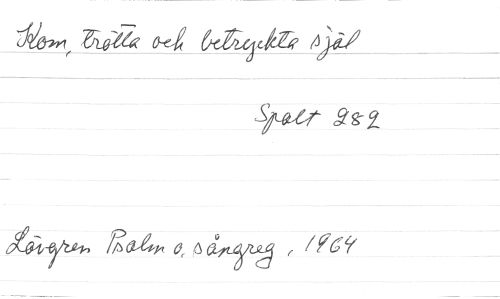 Kom, trötta och betryckta själ
Spalt 282
Lövgren Psalm o. sångreg, 1964